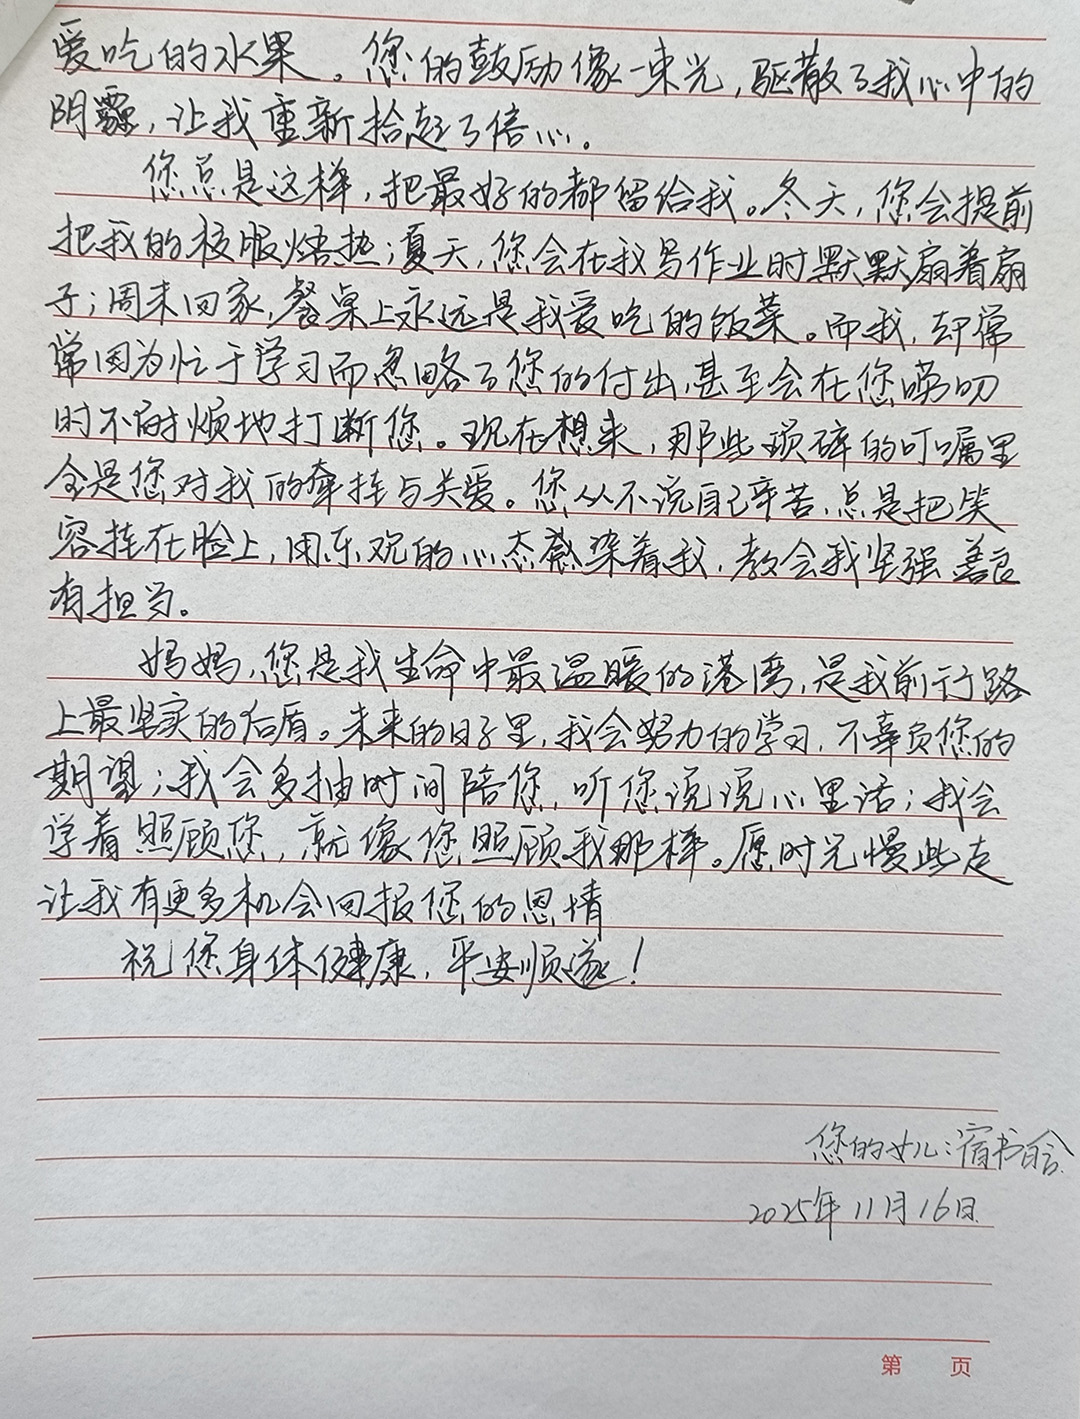 爱吃的水果。您的鼓励像一束光，驱散了我心中的
阴霾，让我重新拾起了信心。
您总是这样，把最好的都留给我。冬天，您会提前
把我的校服焐热；夏天，您会在我写作业时默默扇着扇
子；周末回家，餐桌上永远是我爱吃的饭菜。而我，却常
常因为忙于学习而忽略了您的付出，甚至会在您唠叨
时不耐烦地打断您。现在想来，那些琐碎的叮嘱里
全是您对我的牵挂与关爱。您从不说自己辛苦，总是把笑
容挂在脸上，用乐观的心态感染着我，教会我坚强善良
有担当。
妈妈，您是我生命中最温暖的港湾，是我前行路
上最坚实的后盾。未来的日子里，我会努力的学习，不辜负您的
期望；我会多抽时间陪您，听您说说心里话；我会
学着照顾您，就像您照顾我那样。愿时光慢些走
让我有更多机会回报您的恩情
祝您身体健康，平安顺遂！
您的女儿：宿书晗
2025年11月16日
第 页